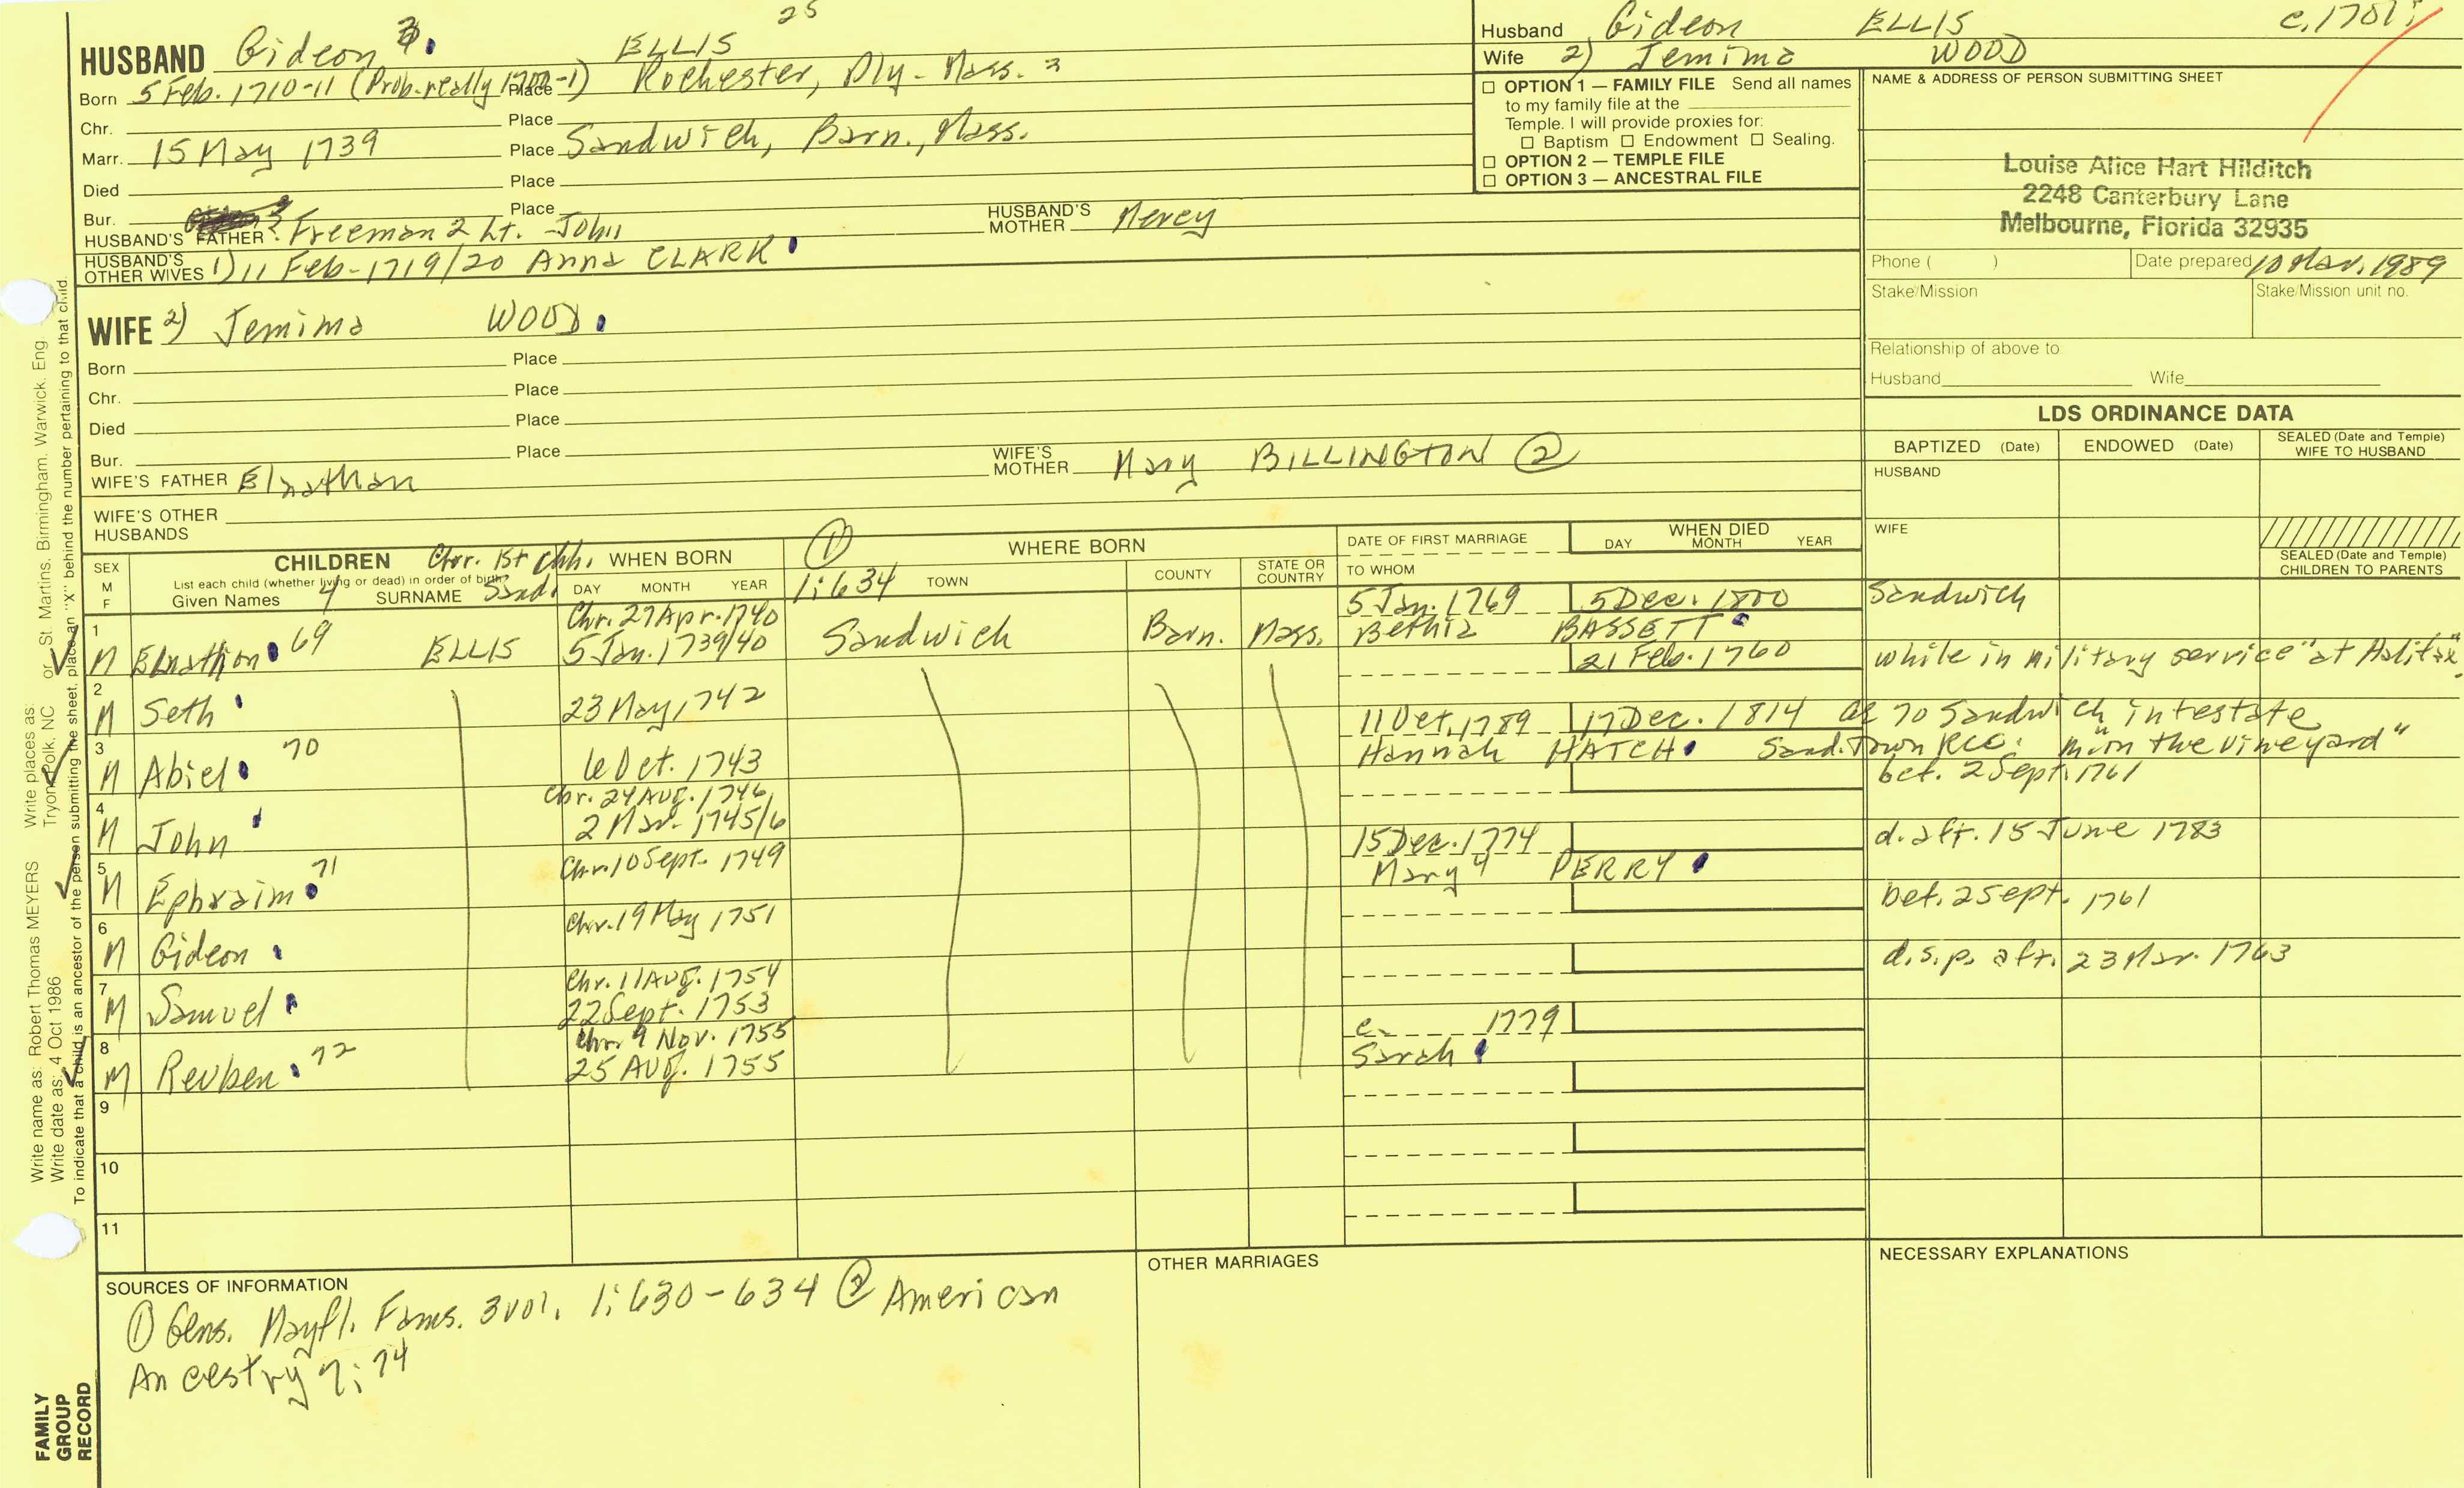 25
HUSBAND Gideon ELLIS
Born 5 Feb. 1710-11 (Prob. really 1700-1) Place Rochester, Ply- Mass.
Chr. Place
Marr. 15 May 1739 Place Sandwich, Barn., Mass.
Died Place
Bur. Place
HUSBAND'S FATHER Freeman 2 Lt. John HUSBAND'S MOTHER Mercy
HUSBAND'S OTHER WIVES 1) 11 Feb-1719/20 Anna CLARK
WIFE 2) Jemima WOOD
Born Place
Chr. Place
Died Place
Bur. Place
WIFE'S FATHER Elnathan WIFE'S MOTHER Mary BILLINGTON ②
WIFE'S OTHER HUSBANDS
Husband Gideon ELLIS c.1701
Wife 2) Jemima WOOD
☐ OPTION 1 — FAMILY FILE Send all names
to my family file at the
Temple. I will provide proxies for:
☐ Baptism ☐ Endowment ☐ Sealing.
☐ OPTION 2 — TEMPLE FILE
☐ OPTION 3 — ANCESTRAL FILE
NAME & ADDRESS OF PERSON SUBMITTING SHEET
Louise Alice Hart Hilditch
2248 Canterbury Lane
Melbourne, Florida 32935
Phone ( ) Date prepared 10 Mar. 1989
Stake/Mission Stake/Mission unit no.
Relationship of above to
Husband Wife
LDS ORDINANCE DATA
BAPTIZED (Date) ENDOWED (Date) SEALED (Date and Temple) WIFE TO HUSBAND
HUSBAND
WIFE
SEALED (Date and Temple) CHILDREN TO PARENTS
SEX M F
CHILDREN Chr. 1st Chh. Sand.
List each child (whether living or dead) in order of birth
Given Names 4 SURNAME
WHEN BORN
DAY MONTH YEAR
① 1:634
WHERE BORN
TOWN COUNTY STATE OR COUNTRY
DATE OF FIRST MARRIAGE
TO WHOM
WHEN DIED
DAY MONTH YEAR
Chr. 27 Apr. 1740 5 Jan. 1769 5 Dec. 1800 Sandwich
1 M Elnathan 69 ELLIS 5 Jan. 1739/40 Sandwich Barn. Mass. Bethia BASSETT
21 Feb. 1760 while in military service "at Halifax"
2 M Seth 23 May, 1742
11 Oct. 1789 17 Dec. 1814 ae 70 Sandwich intestate
3 M Abiel 70 6 Oct. 1743 Hannah HATCH Sand. Town Rec. m "on the vineyard"
Chr. 24 Aug. 1746 bet. 2 Sept. 1761
4 M John 2 Mar. 1745/6
15 Dec. 1774 d. aft. 15 June 1783
5 M Ephraim 71 Chr. 10 Sept. 1749 Mary 4 PERRY
bet. 2 Sept. 1761
6 M Gideon Chr. 19 May 1751
d.s.p. aft. 23 Mar. 1763
Chr. 11 Aug. 1754
7 M Samuel 22 Sept. 1753
Chr. 9 Nov. 1755 c. 1779
8 M Reuben 72 25 Aug. 1755 Sarah
9
10
11
SOURCES OF INFORMATION
① Gens. Mayfl. Fams. 3 vol. 1:630-634 ② American
Ancestry 7:74
OTHER MARRIAGES
NECESSARY EXPLANATIONS
Write name as: Robert Thomas MEYERS Write places as: St. Martins. Birmingham. Warwick. Eng
Write date as: 4 Oct 1986 Tryon. Polk, NC or
To indicate that a child is an ancestor of the person submitting the sheet, place an "X" behind the number pertaining to that child.
FAMILY
GROUP
RECORD